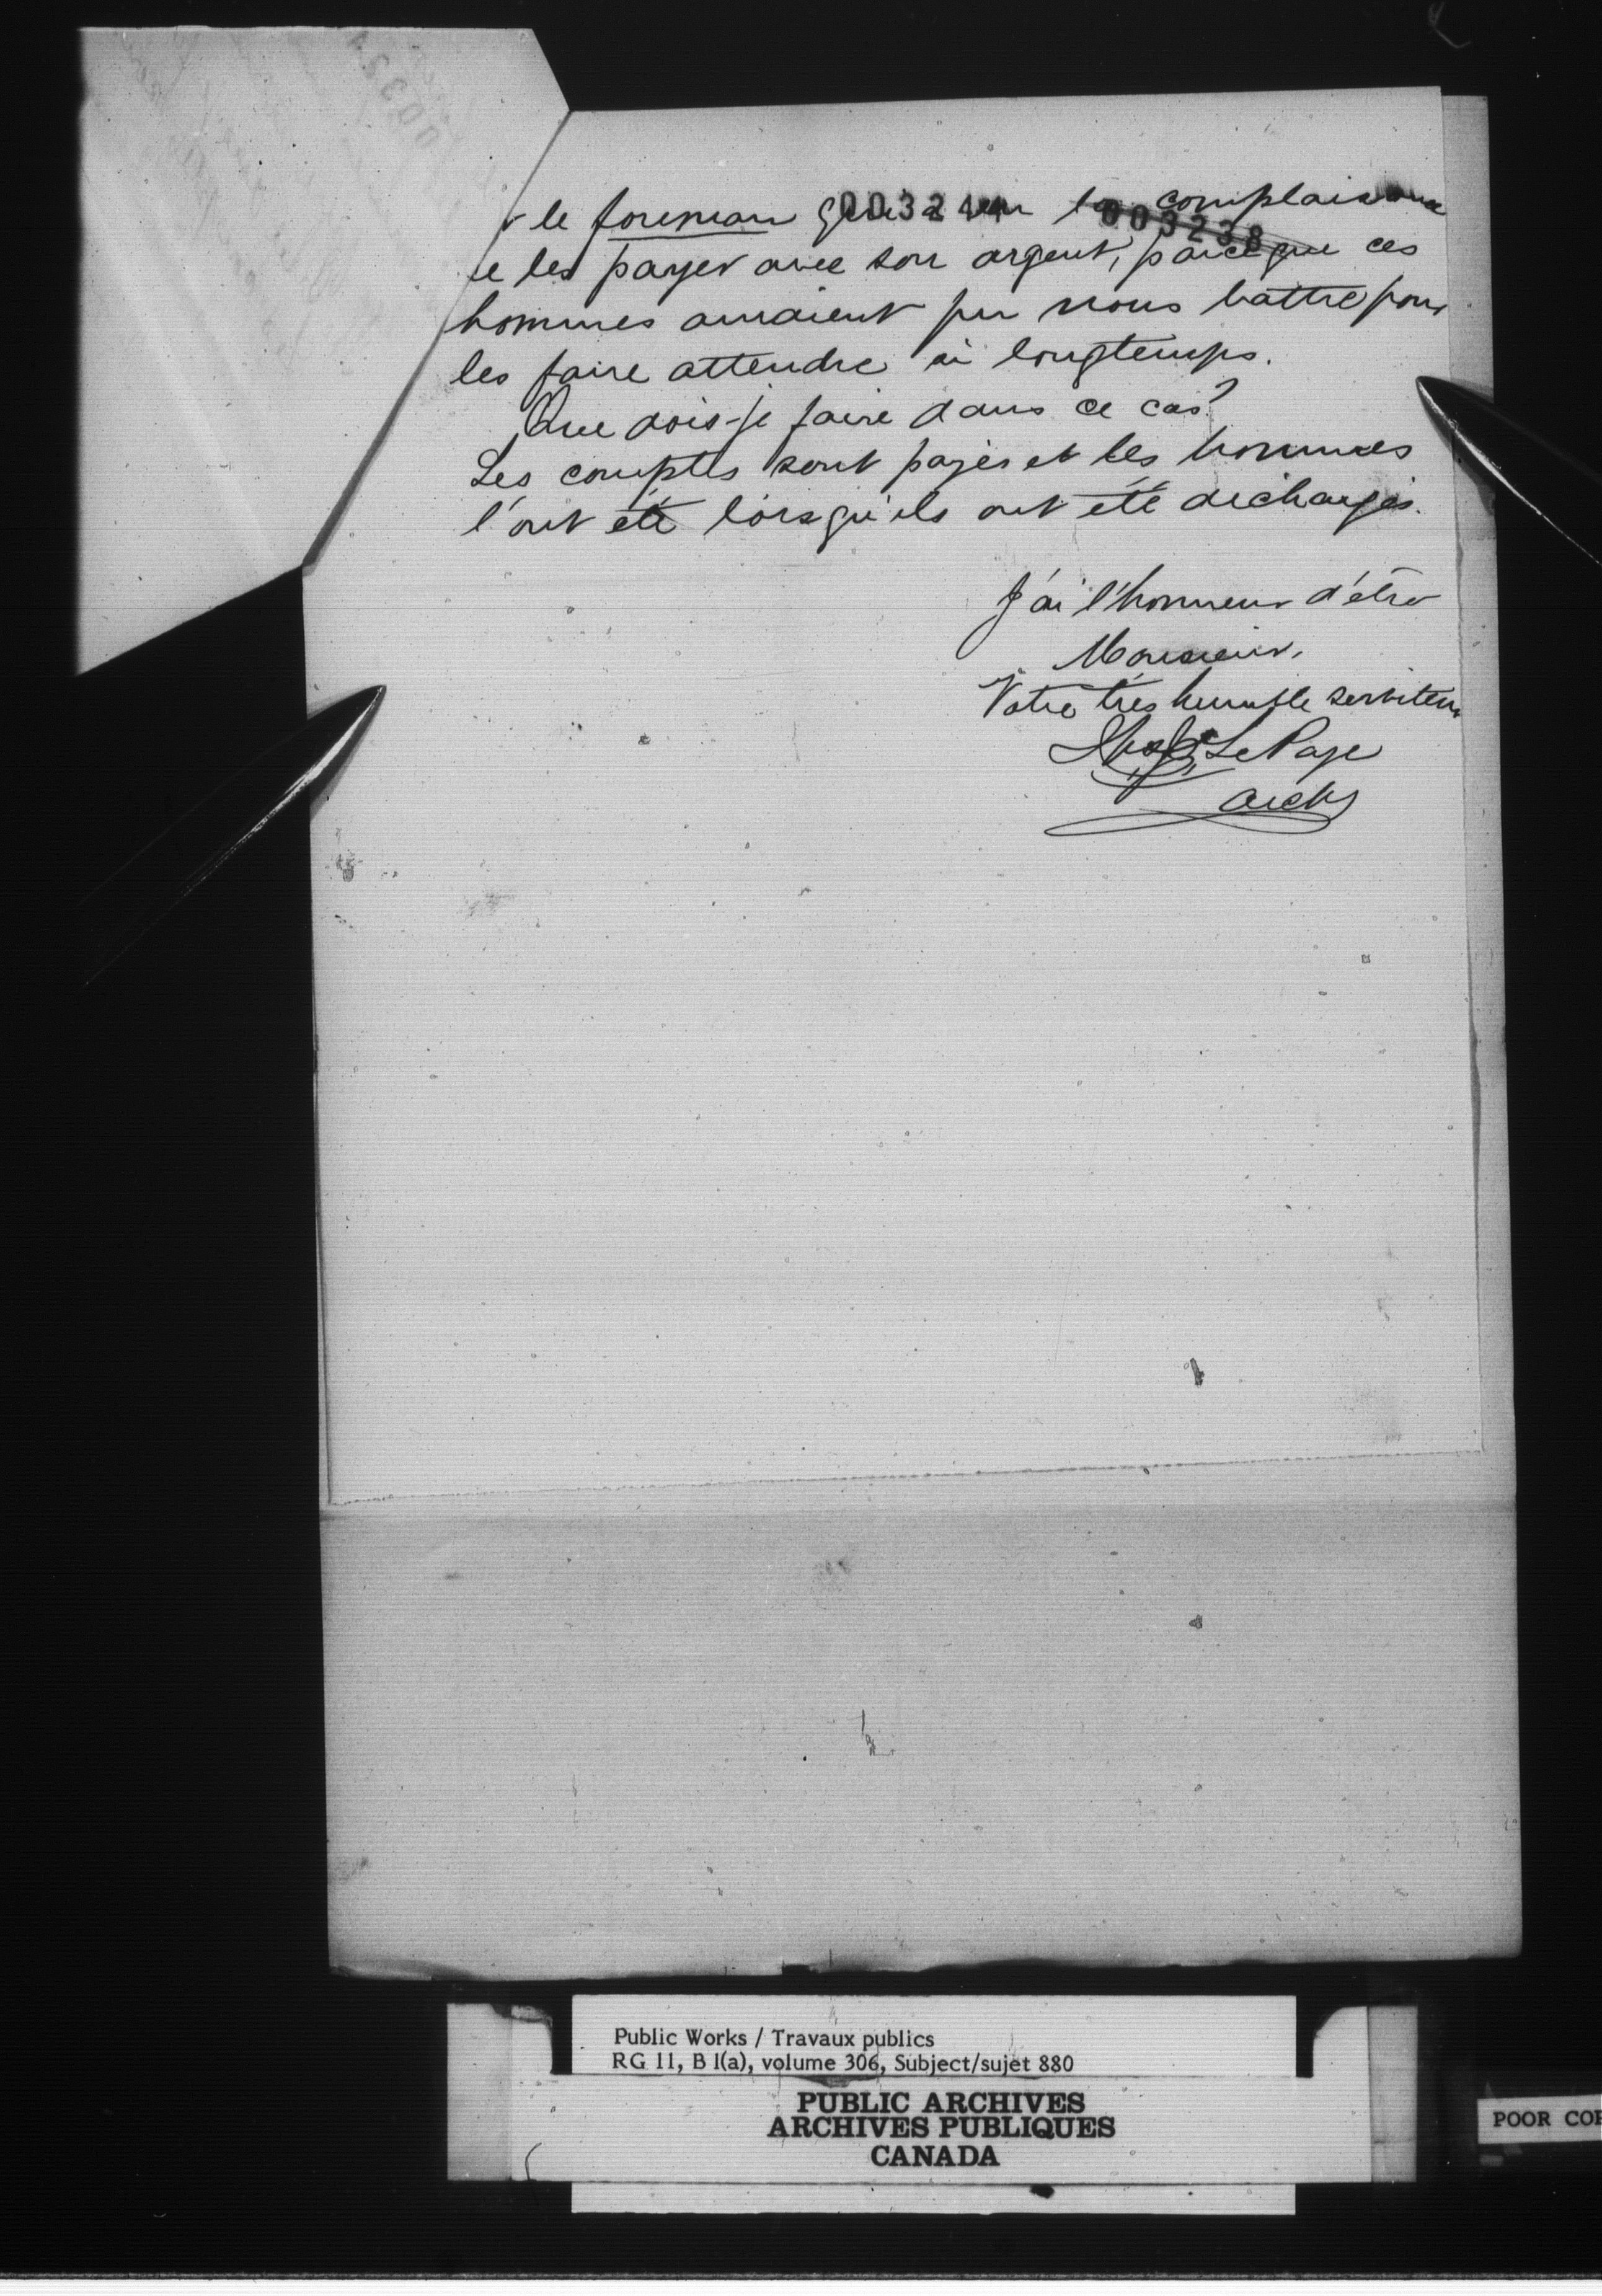 le foreman qui a eu la complaisance
003244
003238
e les payer avec son argent, parceque ces
hommes auraient pu nous battre pour
les faire attendre si longtemps.
Que dois-je faire dans ce cas?
Les comptes sont payés et les hommes
l'ont été lorsqu'ils ont été déchargés.
J'ai l'honneur d'être
Monsieur,
Votre très humble serviteur
LePage
Archt
Public Works / Travaux publics
RG 11, B 1(a), volume 306, Subject/sujet 880
PUBLIC ARCHIVES
ARCHIVES PUBLIQUES
CANADA
POOR COP